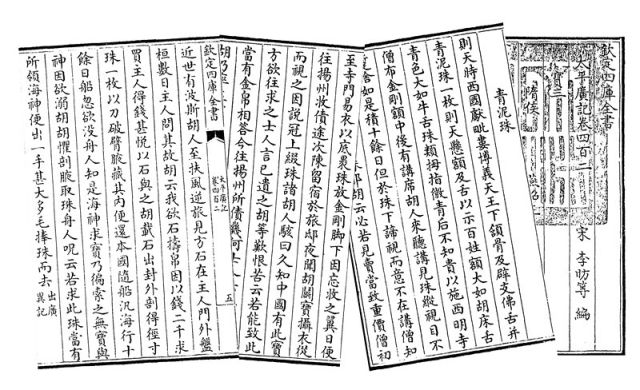 欽定四庫全書
太平廣記卷四百二
宋 李昉等 編
寶三
隋侯
青泥珠
則天時西國獻毗婁博義天王下頷骨及辟支佛舌并
青泥珠一枚則天懸頷及舌以示百姓頷大如胡床舌
青色大如牛舌珠類拇指微青后不知貴以施西明寺
僧布金剛額中後有講席胡人來聽講見珠縱視目不
暫捨如是積十餘日但於珠下諦視而意不在講僧知
胡云必若見賣當致重價僧初
至寺門易衣以底裹珠放金剛脚下因忘收之翼日便
往揚州收債途次陳留宿於旅邸夜聞胡鬬寶攝衣從
而視之因說冠上綴珠諸胡人駭曰久知中國有此寶
方欲往求之士人言已遺之胡等歎恨告云若能致此
當有金帛相答今往揚州所債幾何士人
胡乃
五
欽定四庫全書
近世有波斯胡人至扶風逆旅見方石在主人門外盤
桓數日主人問其故胡云我欲石擣帛因以錢二千求
買主人得錢甚悅以石與之胡載石出封外剖得徑寸
珠一枚以刀破臂腋藏其内便還本國隨船汎海行十
餘日船忽欲没舟人知是海神求寶乃徧索之無寶與
神因欲溺胡胡懼剖腋取珠舟人呪云若求此珠當有
所領海神便出一手甚大多毛捧珠而去 出廣異記